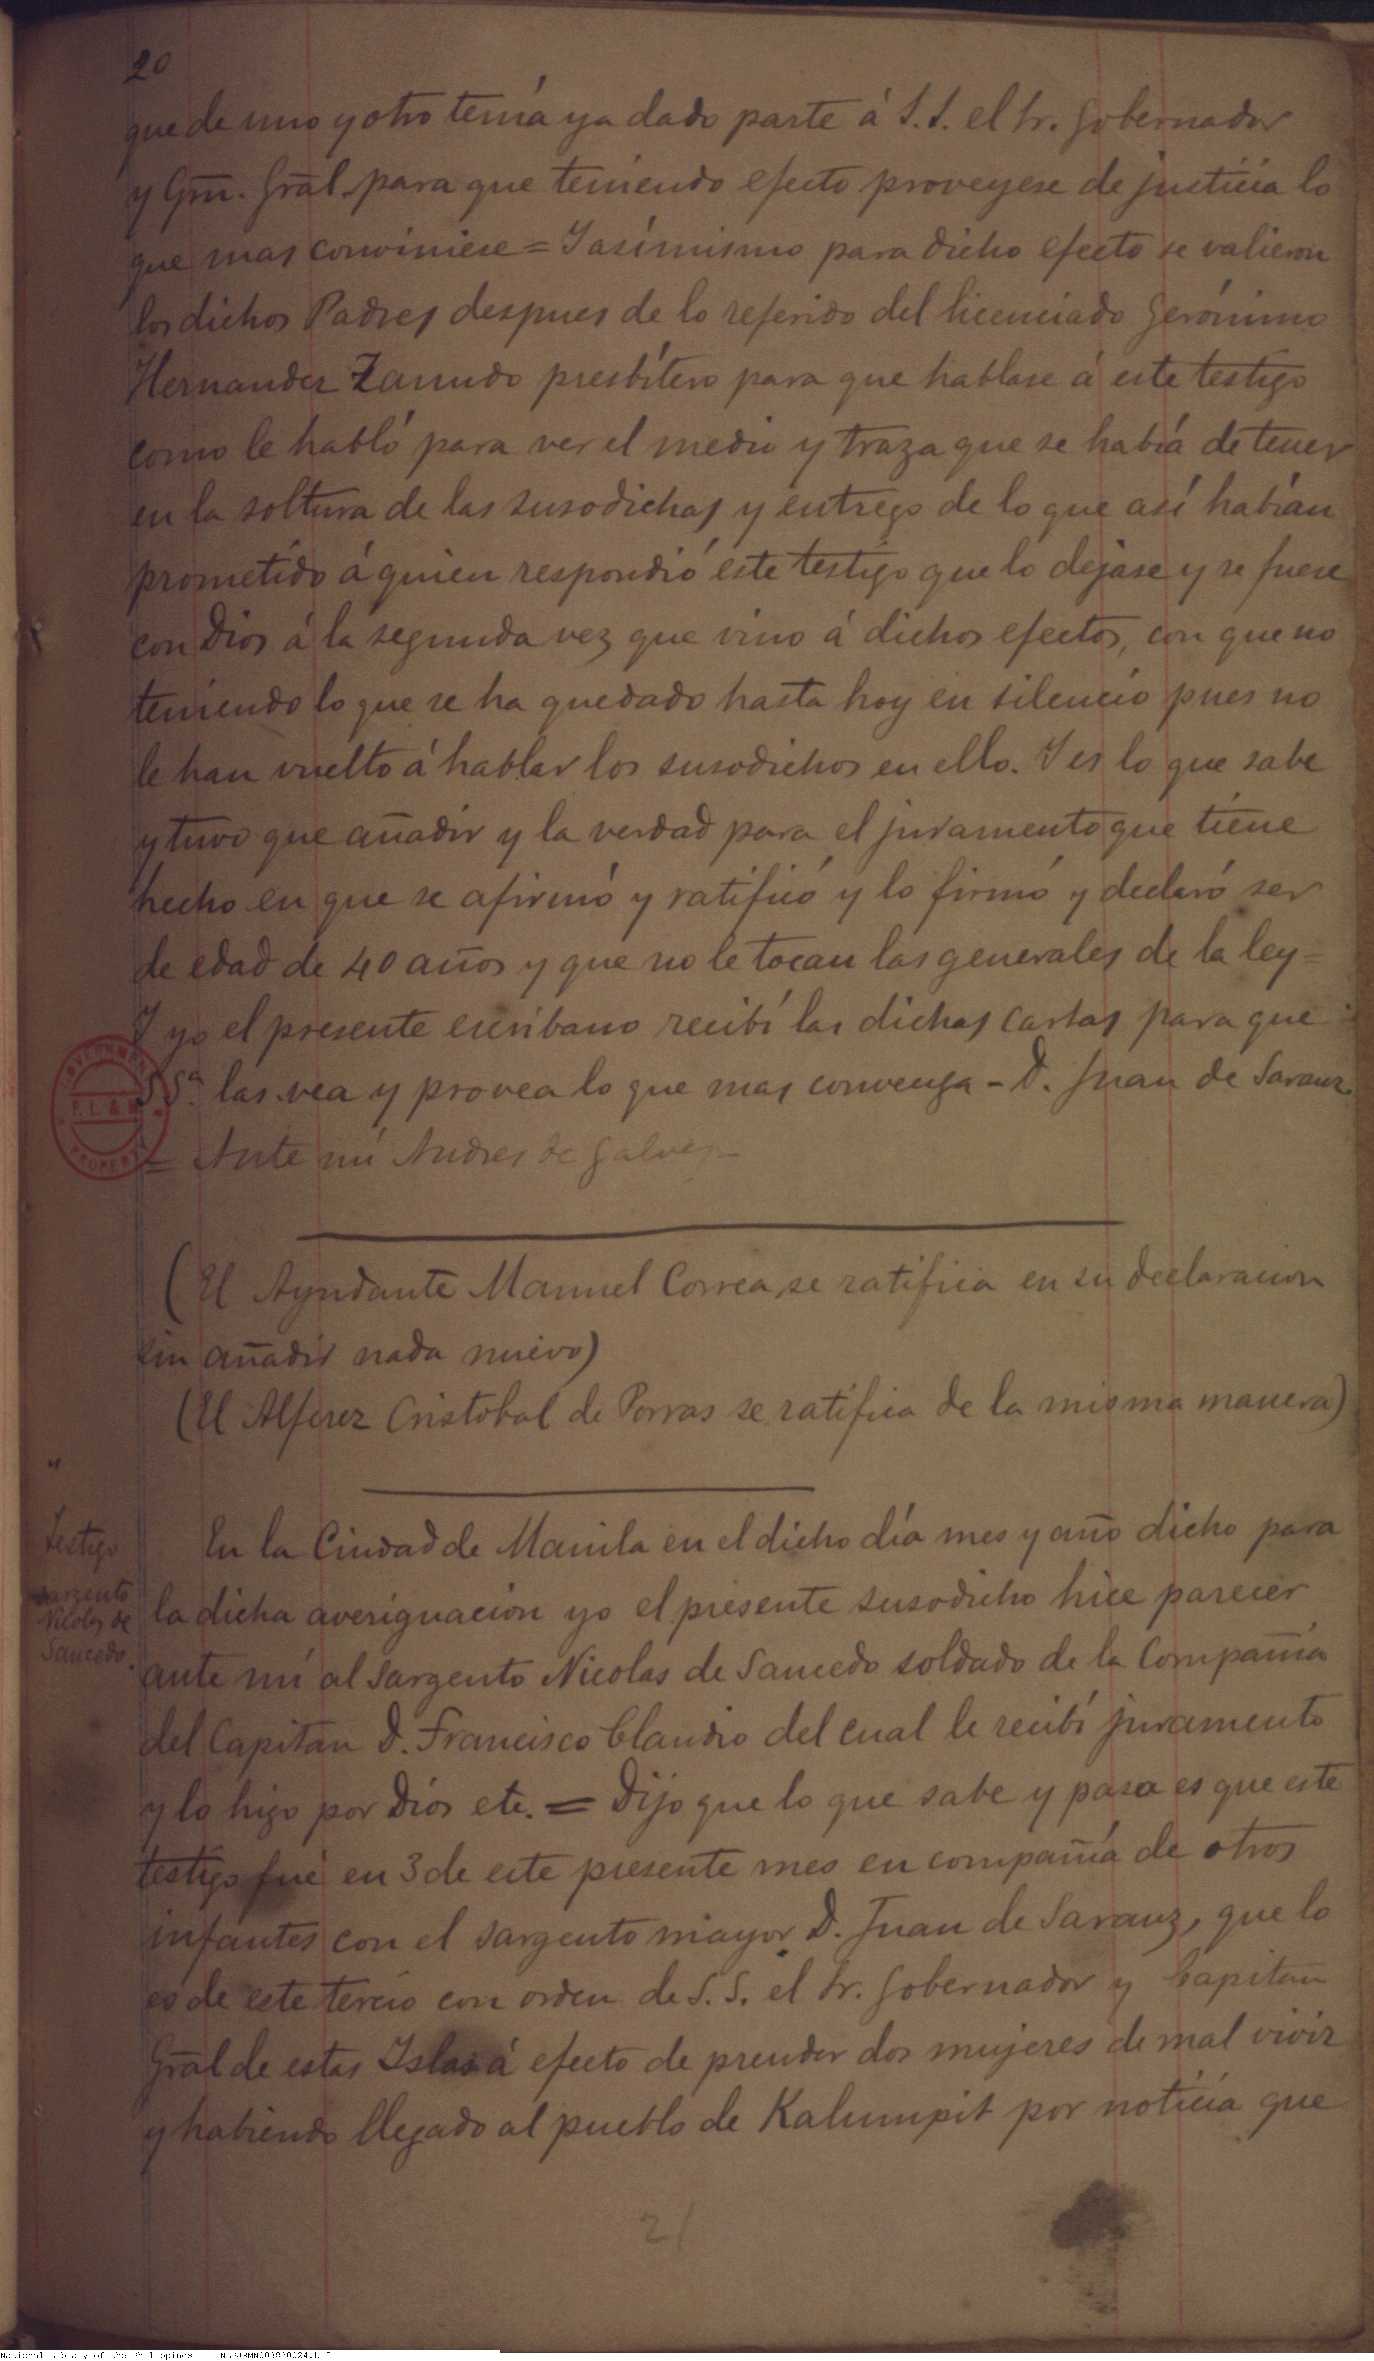 20
que de uno y otro tenía ya dado parte á S.S. el Sr. Gobernador
y Gm̃. Gral. para que teniendo efecto proveyese de justicia lo
que mas conviniese = Y asímismo para dicho efecto se valieron
los dichos Padres despues de lo referido del licenciado Gerónimo
Hernandez Zamudo presbítero para que hablase á este testigo
como le habló para ver el medio y traza que se había de tener
en la soltura de las susodichas y entrego de lo que así habían
prometido á quien respondió este testigo que lo dejase y se fuese
con Dios á la segunda vez que vino á dichos efectos, con que no
teniendo lo que se ha quedado hasta hoy en silencio pues no
le han vuelto á hablar los susodichos en ello. Y es lo que sabe
y tuvo que añadir y la verdad para el juramento que tiene
hecho en que se afirmó y ratificó y lo firmó y declaró ser
de edad de 40 años y que no le tocan las generales de la ley =
Y yo el presente escribano recibí las dichas cartas para que
S Sª. las vea y provea lo que mas convenga - D. Juan de Sarauz
= Ante mí Andres de Galvez -
GOVERNMENT
P.L. & M.
PROPERTY
(El Ayudante Manuel Correa, se ratifica en su declaracion
sin añadir nada nuevo)
(El Alferez Cristobal de Porras se ratifica de la misma manera)
"
Testigo
sargento
Nicolas de
Saucedo.
En la Ciudad de Manila en el dicho día mes y año dicho para
la dicha averiguacion yo el presente susodicho hice parecer
ante mí al sargento Nicolas de Saucedo soldado de la Compañía
del Capitan D. Francisco Claudio del cual le recibí juramento
y lo hizo por Dios etc. = Dijo que lo que sabe y pasa es que este
testigo fué en 3 de este presente mes en compañía de otros
infantes con el sargento mayor D. Juan de Sarauz, que lo
es de este tercio con orden de S.S. el Sr. Gobernador y Capitan
Gral de estas Islas á efecto de prender dos mujeres de mal vivir
y habiendo llegado al pueblo de Kalumpit por noticia que
21
National Library of the Philippines